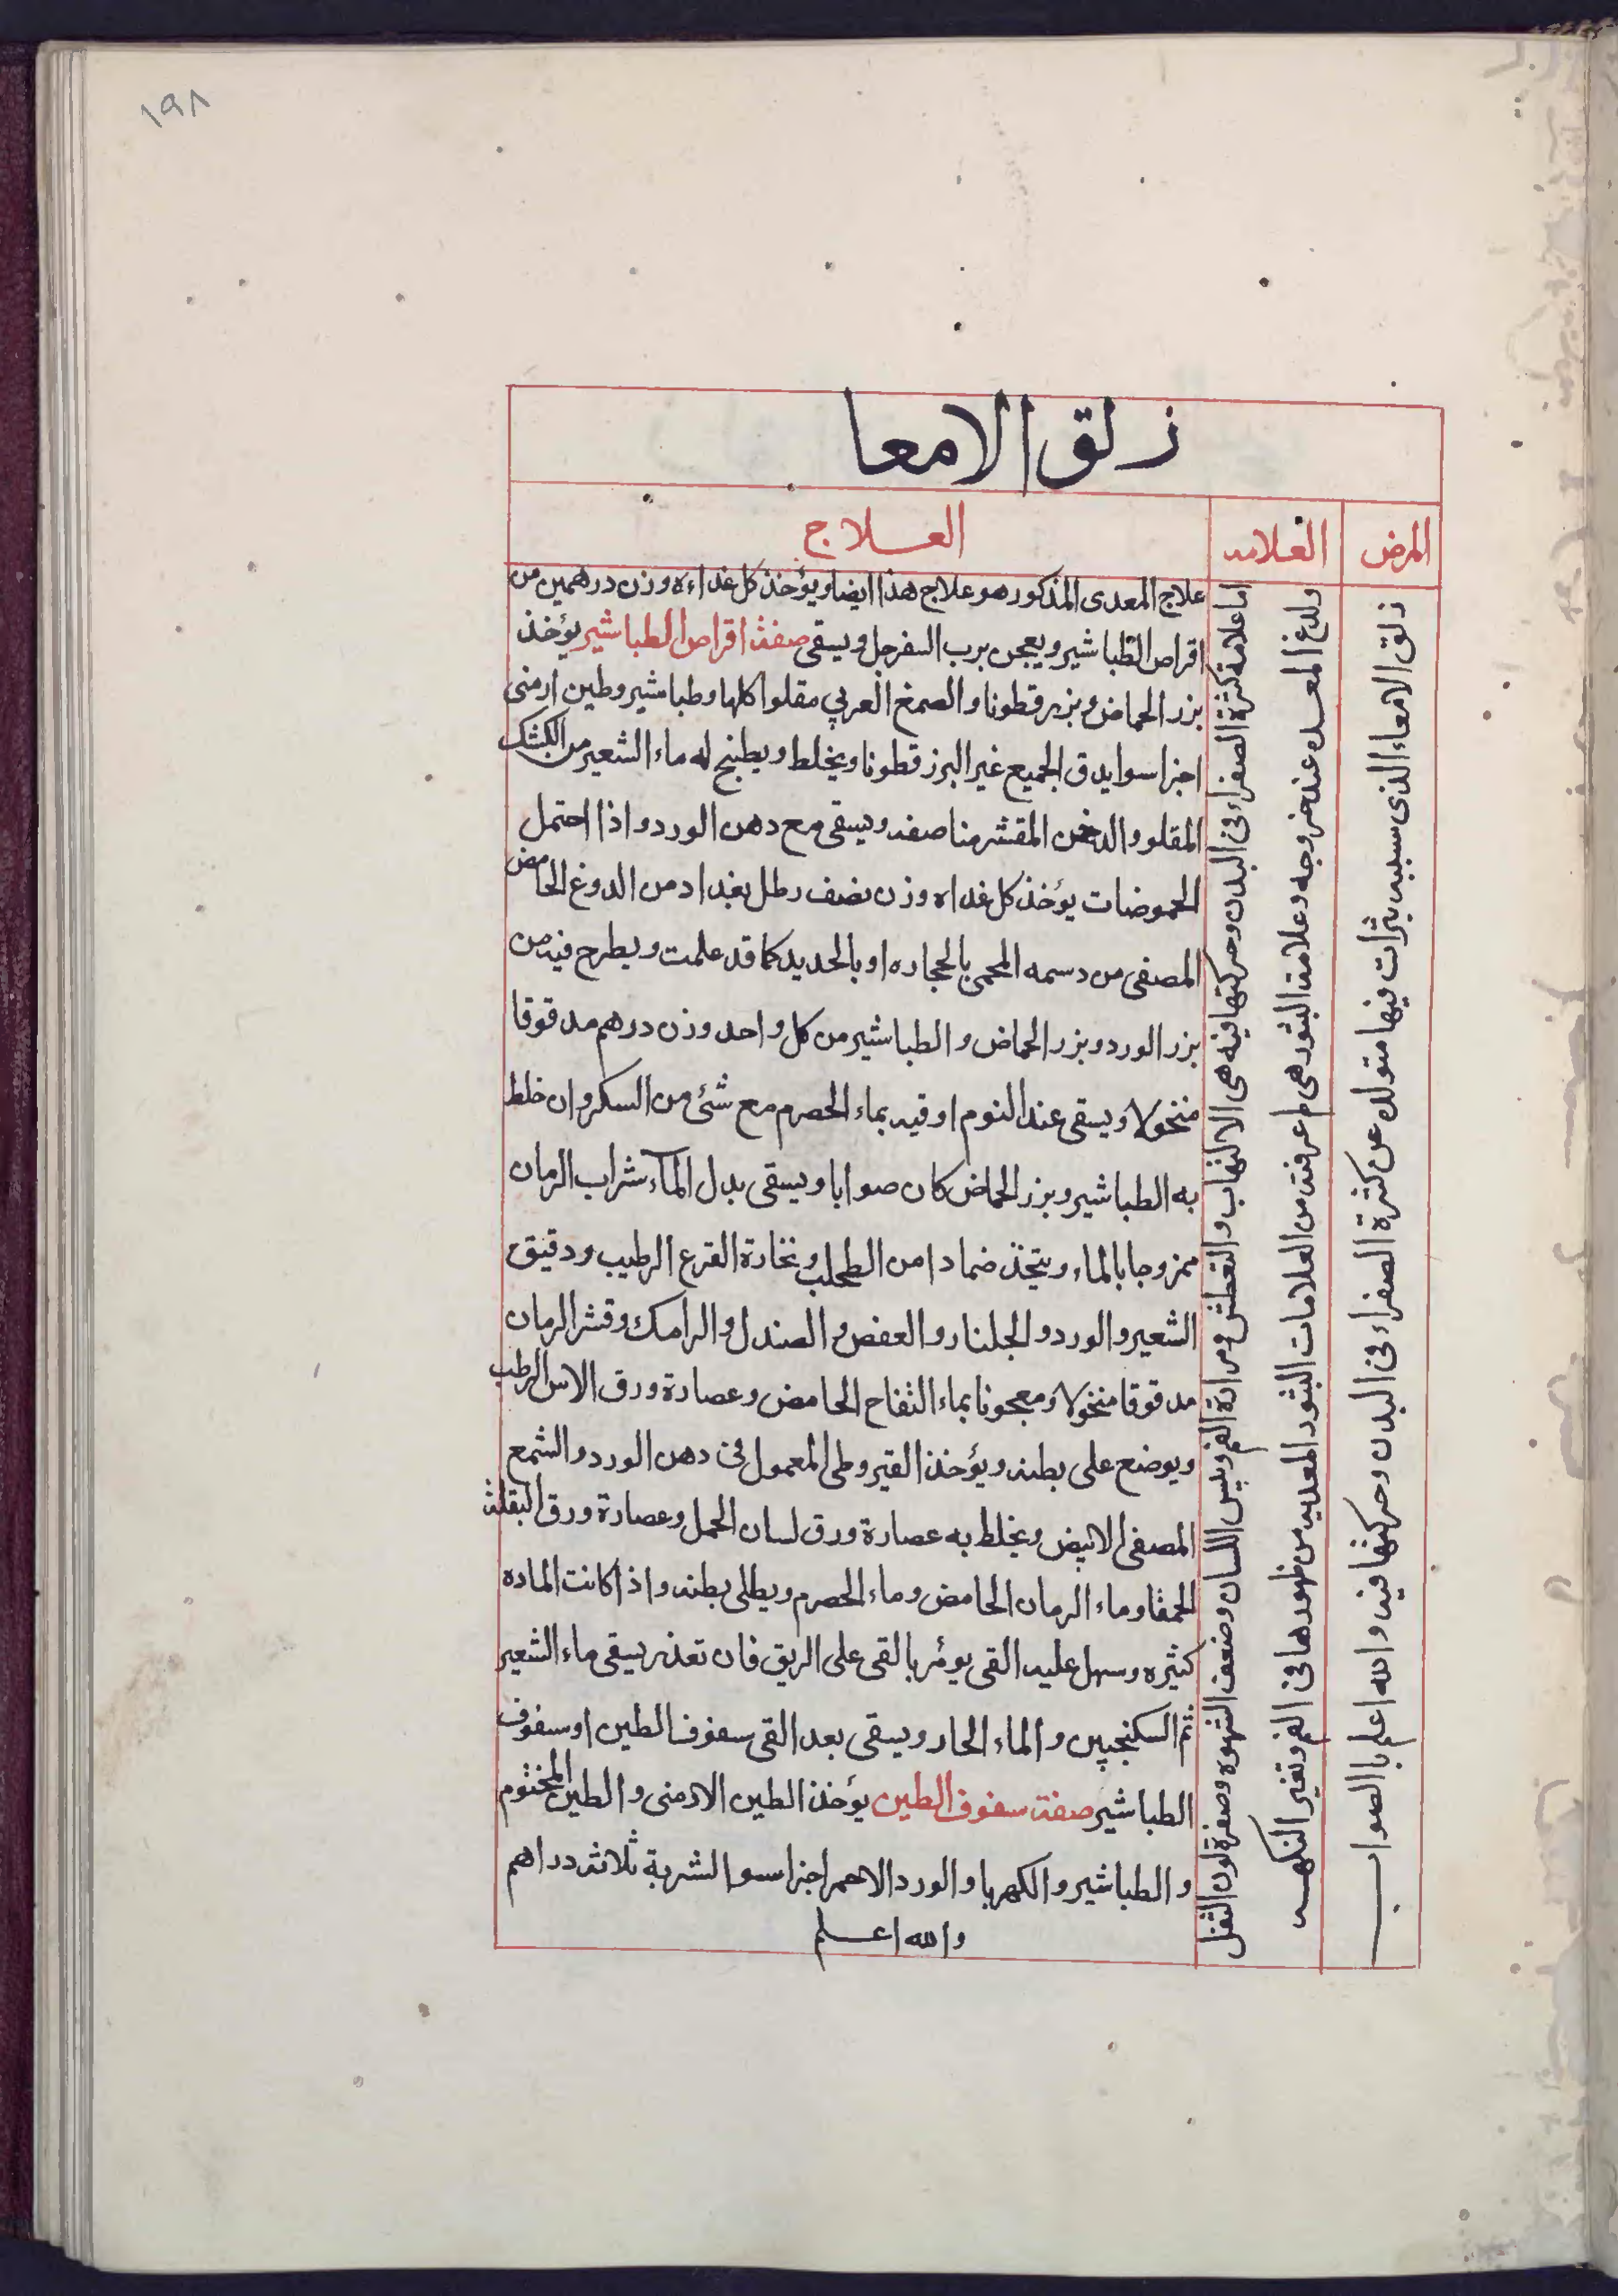 ١٩٨
زلق الامعا
المرض
العلامه
العلاج
زلق الامعاء الذى سببه بثرات فيها متولده عن كثرة الصفراء فى البدن وحركتها فيه والله اعلم بالصواب
اما علامة كثرة الصفراء فى البدن وحركتها فيه هى الالتهاب والتعطش ومرارة الفم ويبس اللسان وضعف الشهوه وصفرة لون الثفل
ولدغ المعده عند خروجه وعلامة البثور هى ما عرفته من العلامات البثور المعديه من ظهورها فى الفم وتغير النكهه
علاج المعدى المذكور هو علاج هذا ايضا ويؤخذ كل غداءة وزن درهمين من
اقراص الطباشير ويعجن برب السفرجل ويسقى صفة اقراص الطباشير يؤخذ
بزر الحماض وبزر قطونا والصمغ العربي مقلوا كلها وطباشير وطين ارمنى
اجزا سوا يدق الجميع غير البزر قطونا ويخلط ويطبخ له ماء الشعير من الكشك
المقلو والدخن المقشر مناصفه ويسقى مع دهن الورد واذا احتمل
الحموضات يؤخذ كل غداه وزن نصف رطل بغداد من الدوغ الحامض
المصفى من دسمه المحمى بالحجاره او بالحديد كما قد علمت ويطرح فيه من
بزر الورد وبزر الحماض والطباشير من كل واحد وزن درهم مدقوقا
منخولا ويسقى عند النوم اوقيه بماء الحصرم مع شئ من السكر وان خلط
به الطباشير وبزر الحماض كان صوابا ويسقى بدل المآء شراب الرمان
ممزوجا بالماء ويتخذ ضمادا من الطحلب ونخارة القرع الرطيب ودقيق
الشعير والورد والجلنار والعفص والصندل والرامك وقشر الرمان
مدقوقا منخولا ومعجونا بماء التفاح الحامض وعصارة ورق الاس الرطب
ويوضع على بطنه ويؤخذ القيروطى المعمول من دهن الورد والشمع
المصفى الابيض ويخلط به عصارة ورق لسان الحمل وعصارة ورق البقلة
الحمقا وماء الرمان الحامض وماء الحصرم ويطلى بطنه واذا كانت الماده
كثيره وسهل عليه القى يؤمر بالقى على الريق فان تعذر يسقى ماء الشعير
ثم السكنجبين والماء الحار ويسقى بعد القى سفوف الطين او سفوف
الطباشير صفة سفوف الطين يؤخذ الطين الارمنى والطين المختوم
والطباشير والكهربا والورد الاحمر اجزا سوا الشربة ثلاثة دراهم
والله اعلم